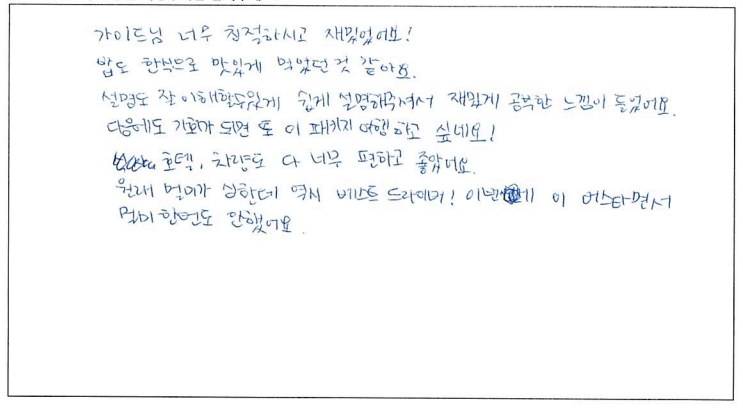 가이드님 너무 친절하시고 재밌었어요!
밥도 한식으로 맛있게 먹었던 것 같아요.
설명도 잘 이해할수있게 쉽게 설명해주셔서 재밌게 공부한 느낌이 들었어요.
다음에도 기회가 되면 또 이 패키지 여행하고 싶네요!
호텔, 차량도 다 너무 편하고 좋았어요.
원래 멀미가 심한데 역시 베스트 드라이버! 이번에 이 버스타면서
멀미 한번도 안했어요.